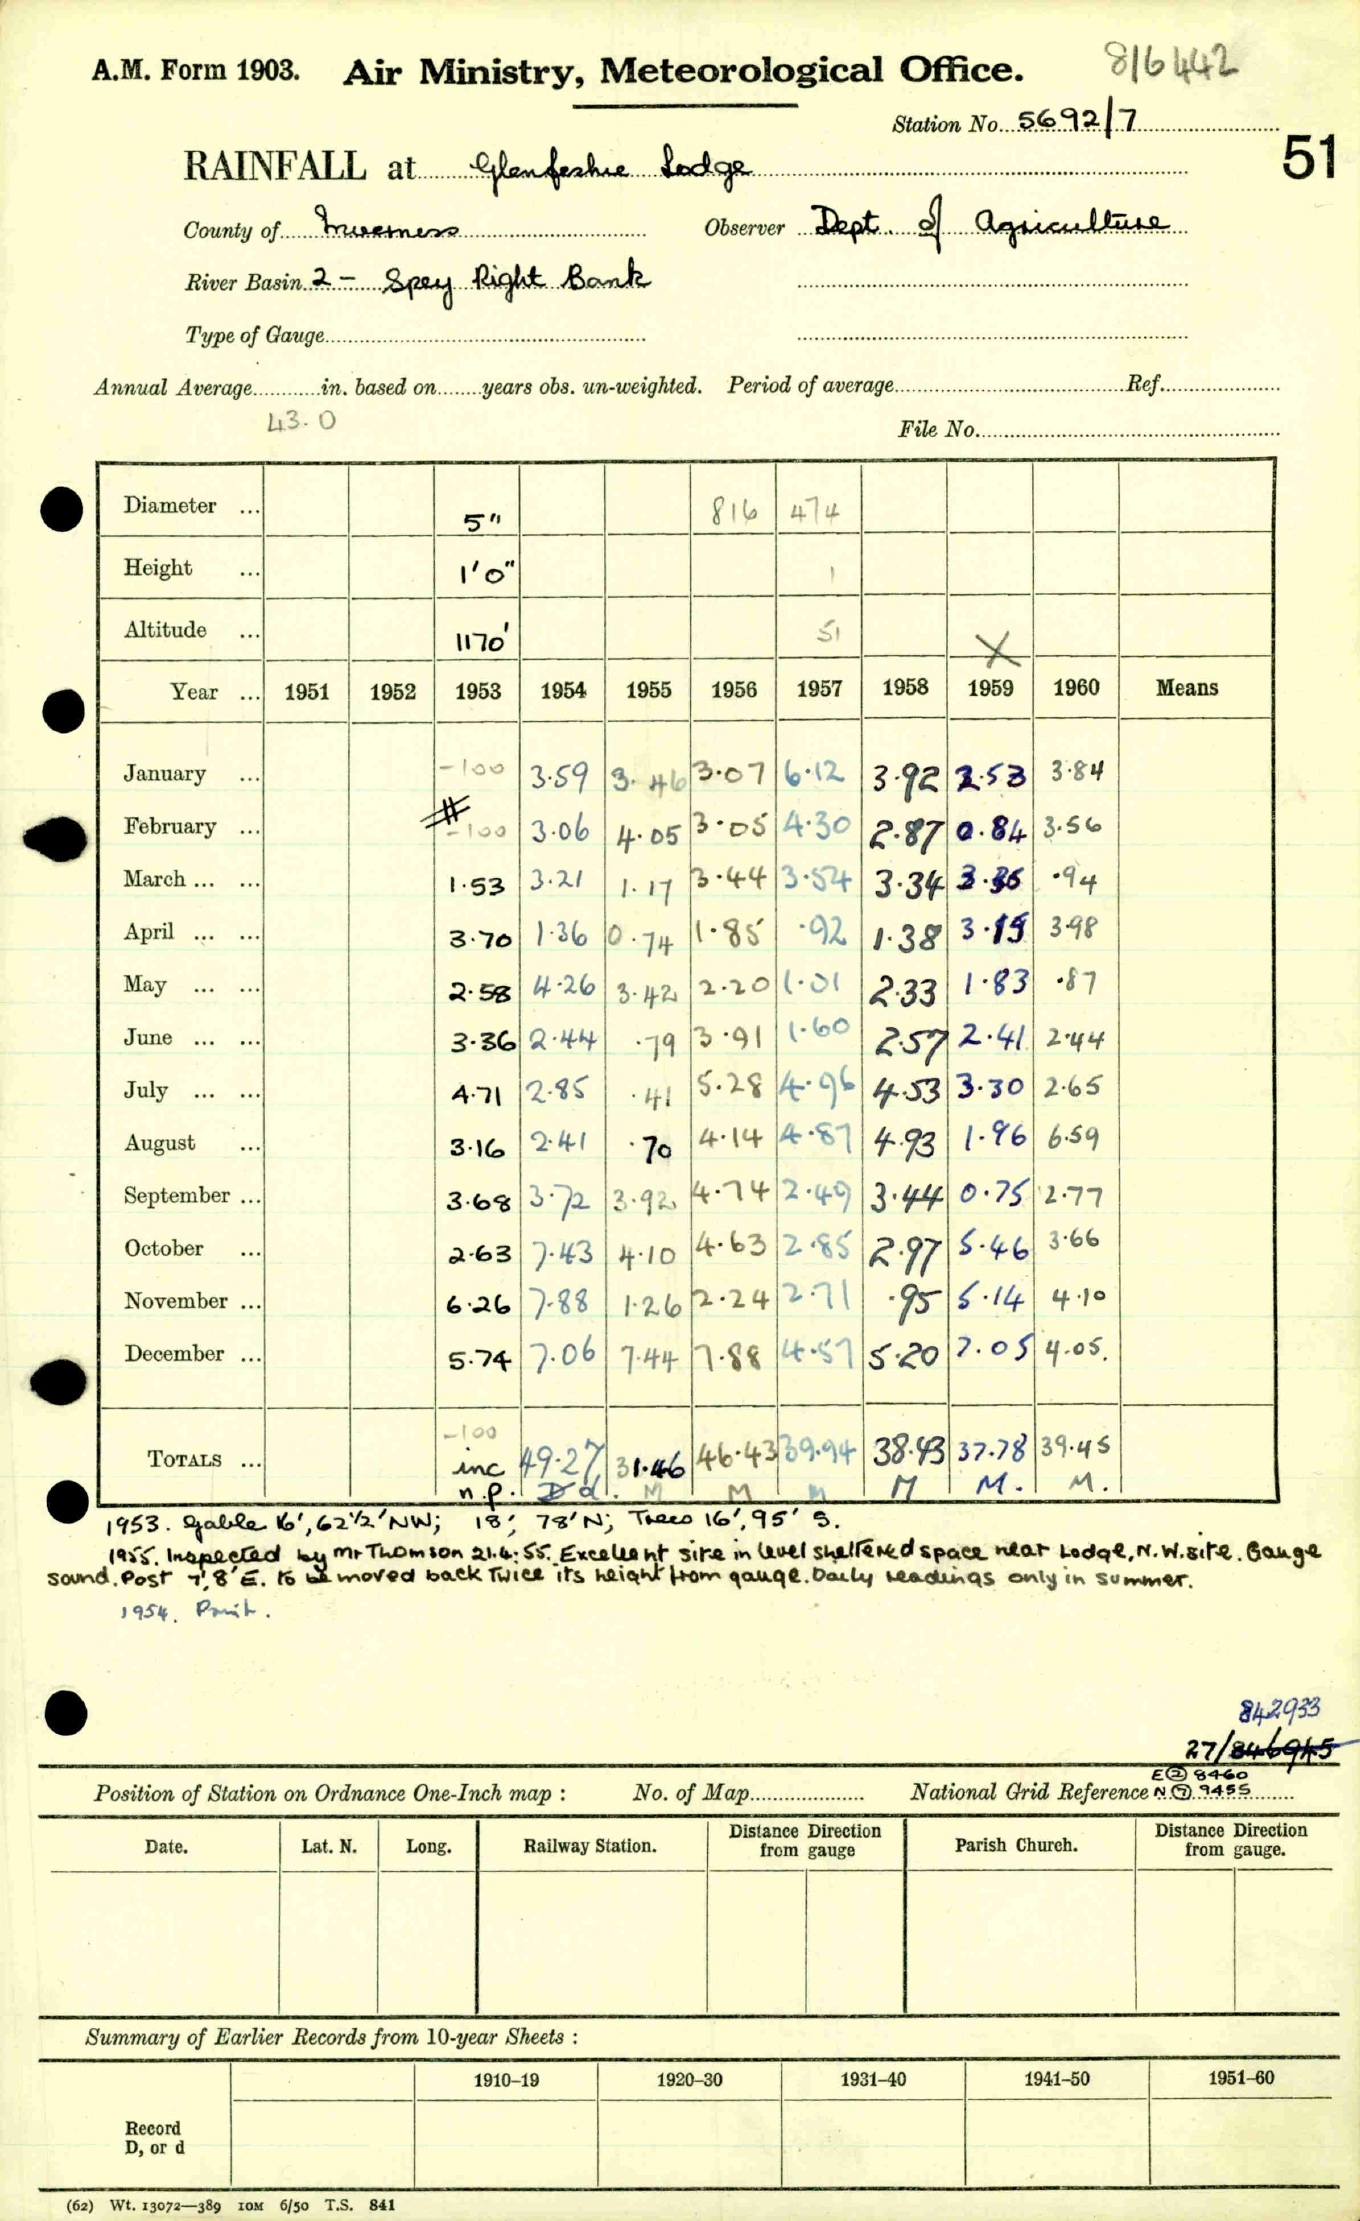 A.M. Form 1903. Air Ministry, Meteorological Office. 816442
Station No. 5692/7
51
RAINFALL at Glenfeshie Lodge
County of Inverness Observer Dept. of Agriculture
River Basin 2 - Spey Right Bank
Type of Gauge
Annual Average in. based on years obs. un-weighted. Period of average Ref.
43.0
File No.
Diameter ... 5" 816 474
Height ... 1'0" 1
Altitude ... 1170' 51 X
Year ... 1951 1952 1953 1954 1955 1956 1957 1958 1959 1960 Means
January ... -100 3.59 3.46 3.07 6.12 3.92 2.53 3.84
February ... -100 3.06 4.05 3.05 4.30 2.87 0.84 3.56
March ... ... 1.53 3.21 1.17 3.44 3.54 3.34 3.36 .94
April ... ... 3.70 1.36 0.74 1.85 .92 1.38 3.15 3.98
May ... ... 2.58 4.26 3.42 2.20 1.01 2.33 1.83 .87
June ... ... 3.36 2.44 .79 3.91 1.60 2.57 2.41 2.44
July ... ... 4.71 2.85 .41 5.28 4.96 4.53 3.30 2.65
August ... 3.16 2.41 .70 4.14 4.87 4.93 1.96 6.59
September ... 3.68 3.72 3.92 4.74 2.49 3.44 0.75 2.77
October ... 2.63 7.43 4.10 4.63 2.85 2.97 5.46 3.66
November ... 6.26 7.88 1.26 2.24 2.71 .95 5.14 4.10
December ... 5.74 7.06 7.44 7.88 4.57 5.20 7.05 4.05.
-100
TOTALS ... inc 49.27 31.46 46.43 39.94 38.43 37.78 39.45
n.p. D d. M M M M M. M.
1953. Gable 16', 62½' NW; 18', 78' N; Trees 16', 95' S.
1955. Inspected by Mr Thomson 21.4.55. Excellent site in level sheltered space near Lodge, N.W. site. Gauge
sound. Post 7', 8' E. to be moved back twice its height from gauge. Daily readings only in summer.
1954.
842933
27/846945
E② 8460
Position of Station on Ordnance One-Inch map : No. of Map National Grid Reference N⑦ 9455
Date. Lat. N. Long. Railway Station. Distance Direction from gauge Parish Church. Distance Direction from gauge.
Summary of Earlier Records from 10-year Sheets :
1910–19 1920–30 1931–40 1941–50 1951–60
Record
D, or d
(62) Wt. 13072—389 10M 6/50 T.S. 841